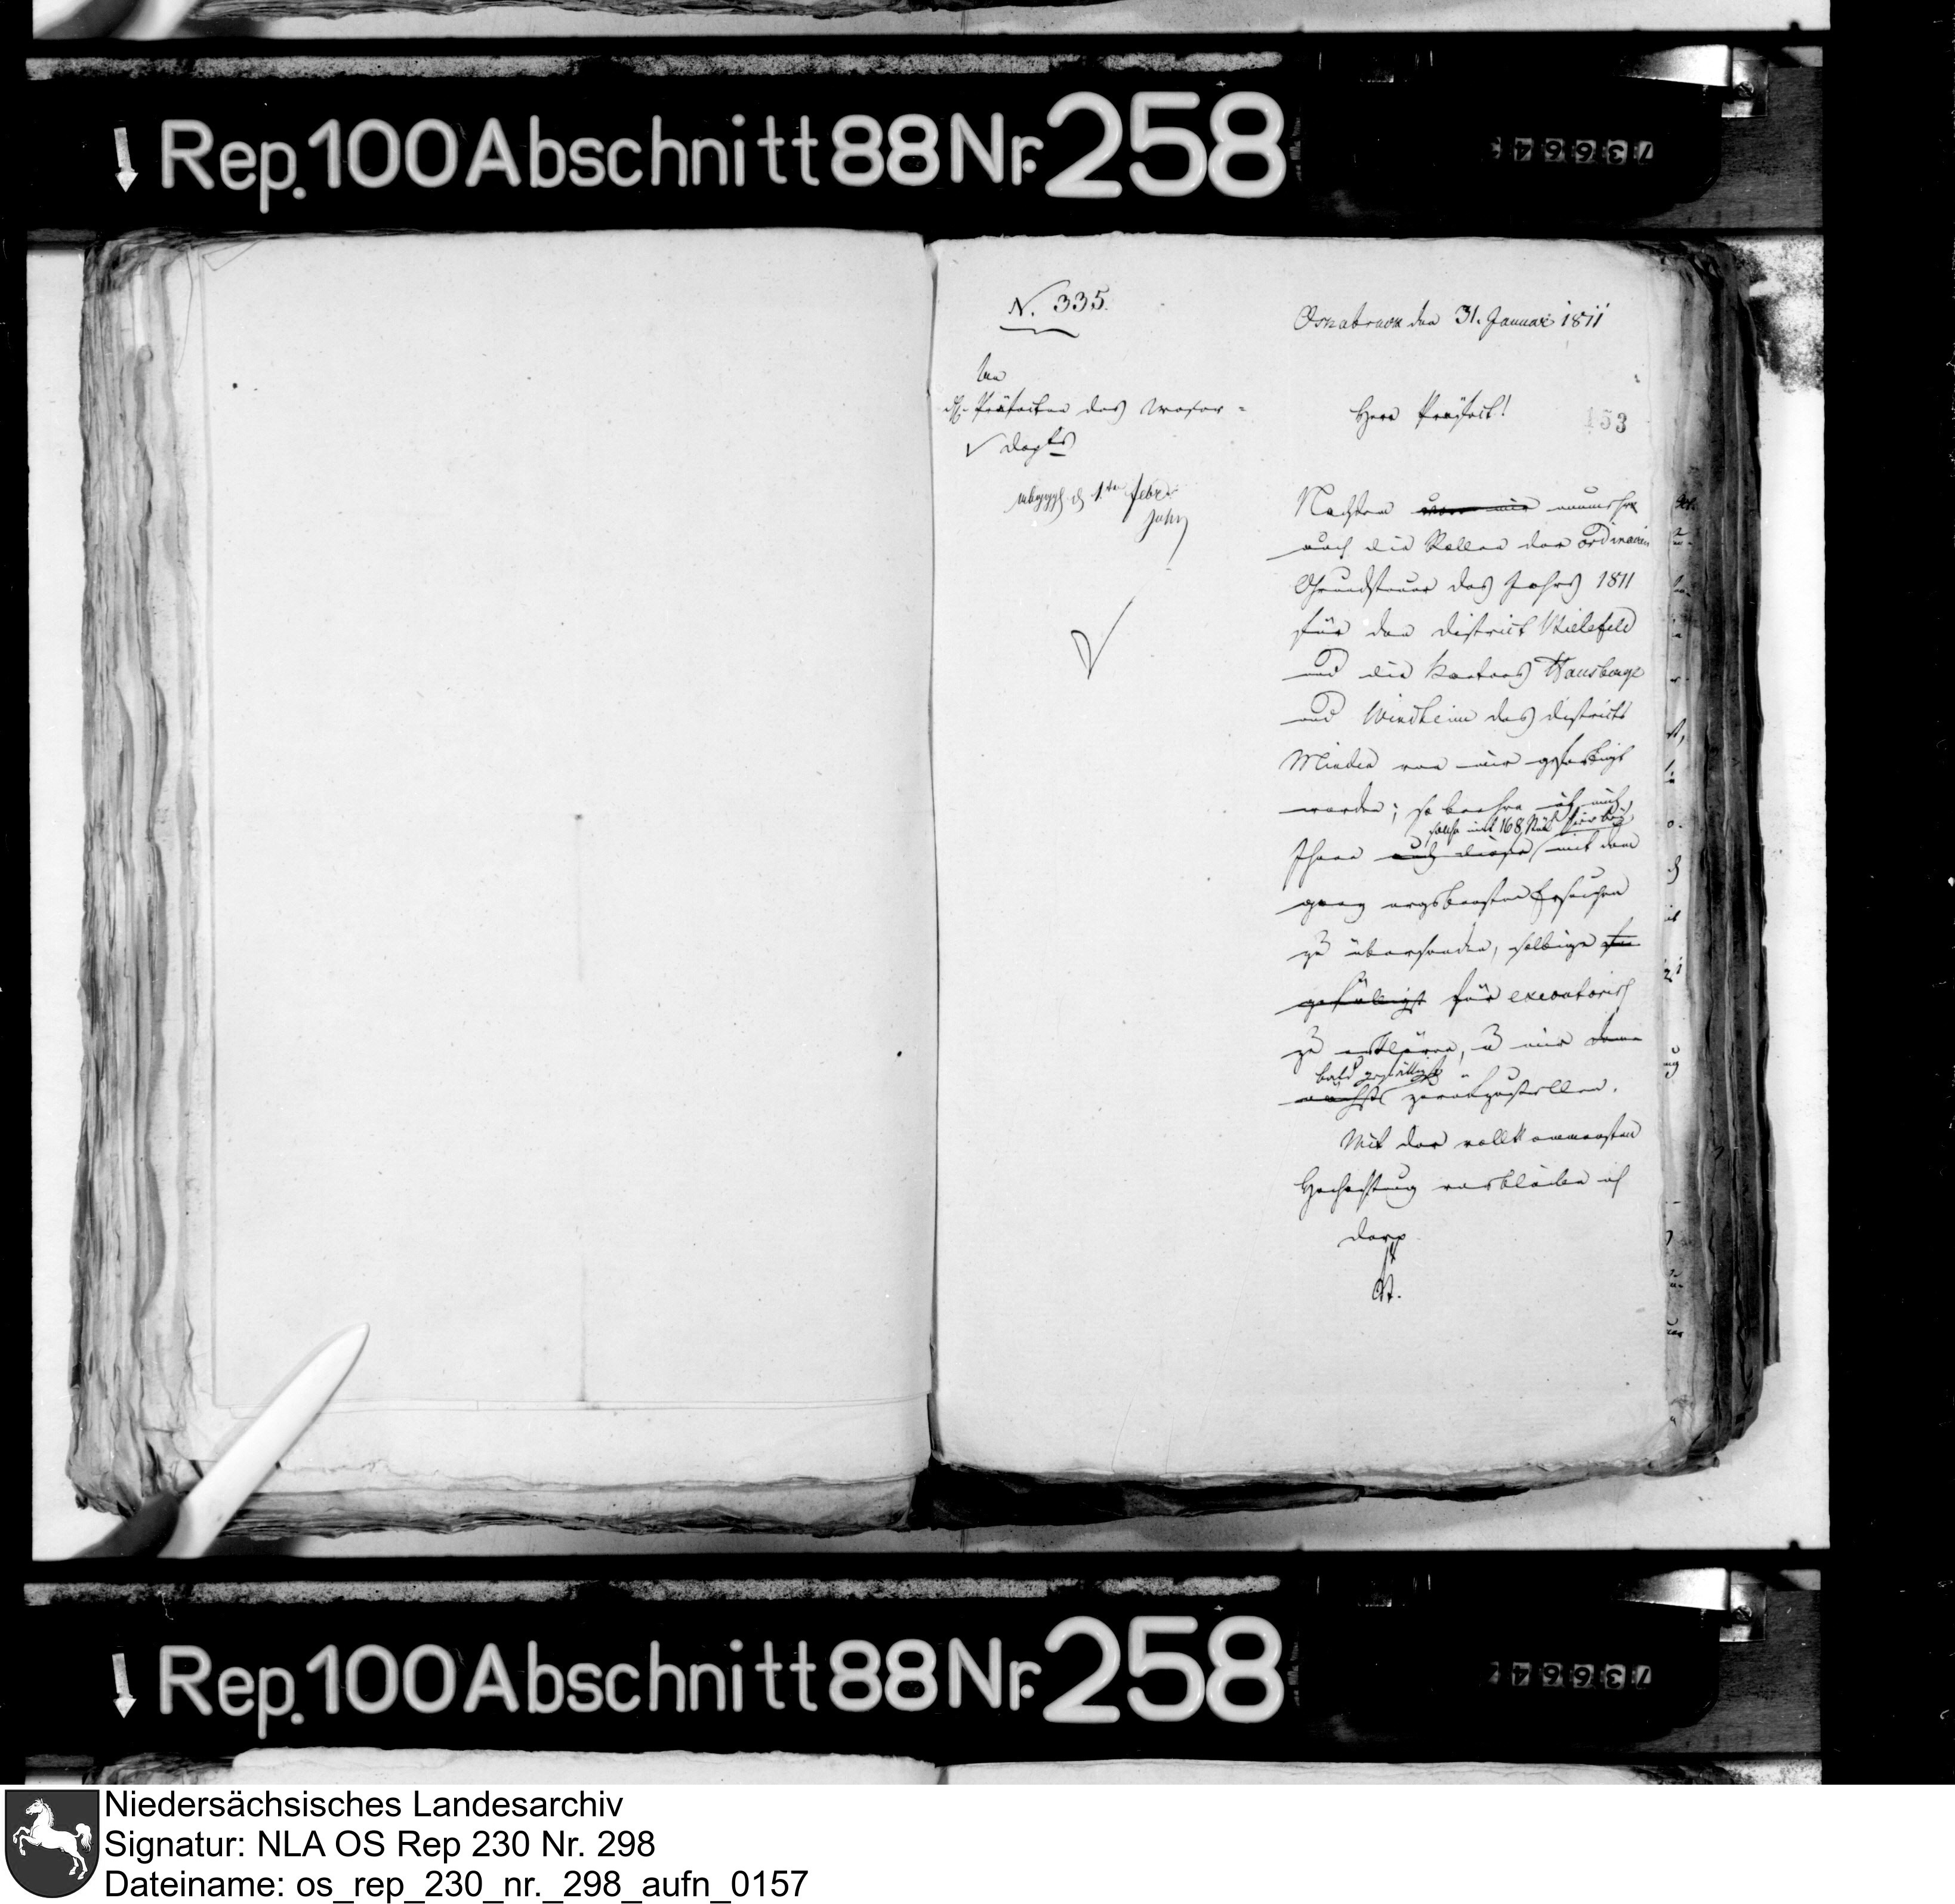 Rep. 100 Abschnitt 88 Nr. 258
N. 335.
Osnabrück den 31. Januar 1811
An
Präfecten des Weser-
Depts
Herr Präfect!
153
1ten Febr
Jahn
Nachdem von mir nunmehr
auch die Rollen der ordinairen
Grundsteuer des Jahrs 1811
für den District Bielefeld
und die Kantons Hausberge
und Windheim des Districts
Minden von mir gefertigt
worden; so beehre ich mich,
solche mit 168 Stück hierbey
Ihnen auch diese mit dem
ganz ergebensten Ersuchen
zu übersenden, selbige
gefälligst für executorisch
zu erklären, u mir dem
bald gefälligst
nächst zurückzustellen.
Mit der vollkommensten
Hochachtung verbleibe ich
Rep. 100 Abschnitt 88 Nr. 258
Niedersächsisches Landesarchiv
Signatur: NLA OS Rep 230 Nr. 298
Dateiname: os_rep_230_nr._298_aufn_0157